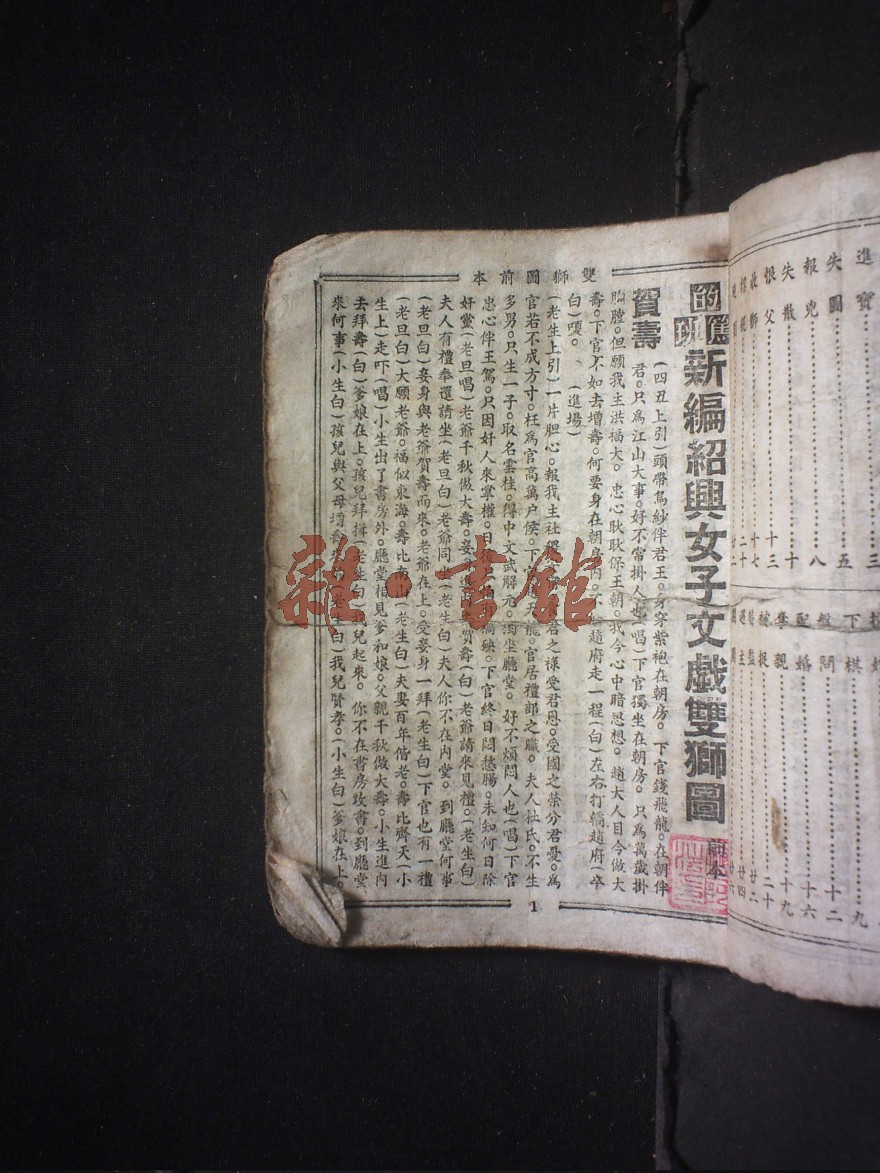 雙獅圖前本
的篤班新編紹興女子文戲雙獅圖
前本
賀壽
(四丑上引)頭帶烏紗伴君王。身穿紫袍在朝房。下官錢飛龍。在朝伴
君。只爲江山大事。好不常掛人也(唱)下官獨坐在朝房。只爲萬歲掛
胸膛。但願我主洪福大。忠心耿耿保王朝。我今心中暗思想。趙大人目今做大
壽。下官不如去增壽。何要身在朝房內。趙府走一程(白)左右打轎趙府(卒
白)嗄。(進場)
(老生上引)一片胆心。報我主社君之樣受君恩。受國之祿分君憂。爲
官若不成方寸。枉爲官高萬户侯。下官天龍。官居禮部之職。夫人杜氏。不生
多男。只生一子。取名雲桂。得中文武解元。獨坐廳堂。好不煩悶人也(唱)下官
忠心伴王駕。只因奸人來掌權。日後殃。下官終日悶愁腸。未知何日除
奸黨(老旦唱)老爺千秋做大壽。妾賀壽(白)老爺請來見禮。(老生白)
夫人有禮奉還請坐(老旦白)老爺同坐(老生白)夫人你不在內堂。到廳堂何事
(老旦白)妾身與老爺賀壽而來。老爺在上。受妾身一拜(老生白)下官也有一禮
(老旦白)大願老爺。福似東海。壽比南山(老生白)夫妻百年偕老。壽比齊天(小
生上)走吓(唱)小生出了書房外。廳堂相見爹和娘。父親千秋做大壽。小生進內
去拜壽(白)爹娘在上。孩兒拜揖(老生白)我兒起來。你不在書房攻書。到廳堂
來何事(小生白)孩兒與父母增壽(老生白)我兒賢孝。(小生白)爹娘在上。
1
進寶 三
失圖 五
報兇 八
失散 十
恨父 十三
收獅 十七
棋 九
盤問 十二
配婚 十六
奪親 十九
雜·書館